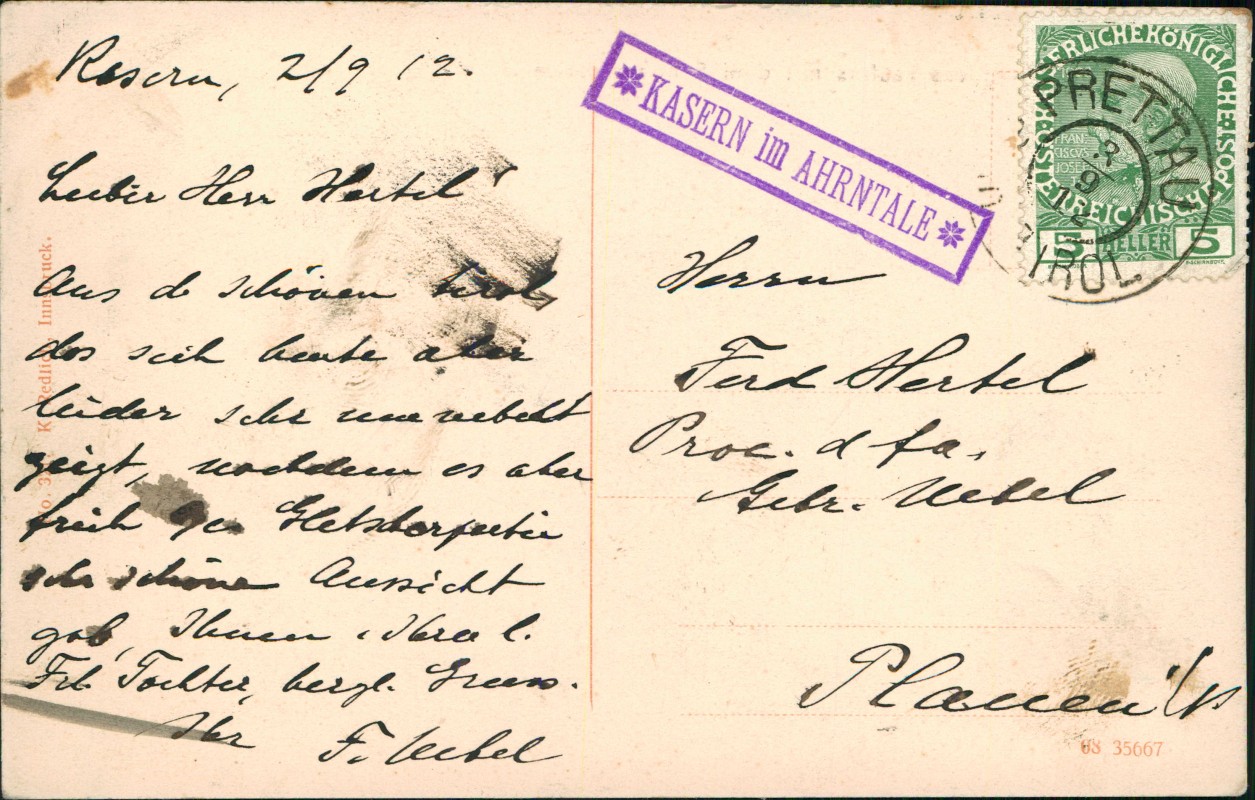 Kasern, 2/9 12.
Lieber Herr Hertel!
Aus d. schönen Tirol
das sich heute aber
leider sehr umnebelt
zeigt, nachdem es aber
früh
sehr schöne Aussicht
gab, Ihnen
Frl. Tochter, bergl. Gruss.
Ihr F. Uebel
No. 3 K. Redlich, Innsbruck.
KASERN im AHRNTALE
KAISERLICHE KÖNIGLICHE ÖSTERREICHISCHE
FRAN
CISCVS
JOSE
5 HELLER 5
PRETTAU
2
9
12
TIROL
Herrn
Ferd Hertel
Proc. d fa.
Gebr. Uebel
Plauen i/V
08 35667